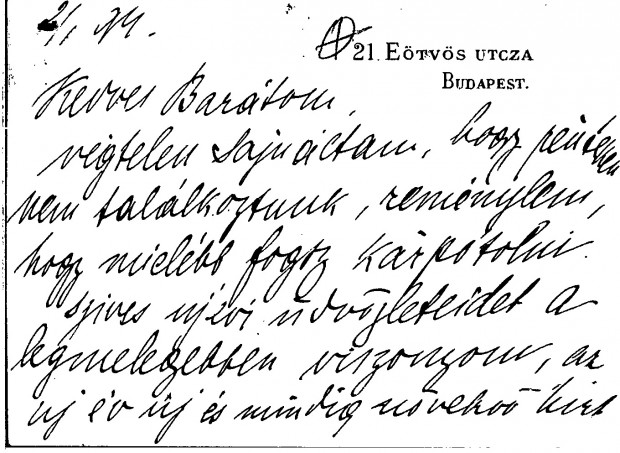 2/I
21. EÖTVÖS UTCZA
BUDAPEST.
Kedves Barátom,
végtelen sajnáltam, hogy pénteken
nem találkoztunk, reménylem,
hogy mielébb fogsz kárpótolni.
Szives ujévi üdvözleteidet a
legmelegebben viszonzom, az
uj év uj és mindig növekvő hirt